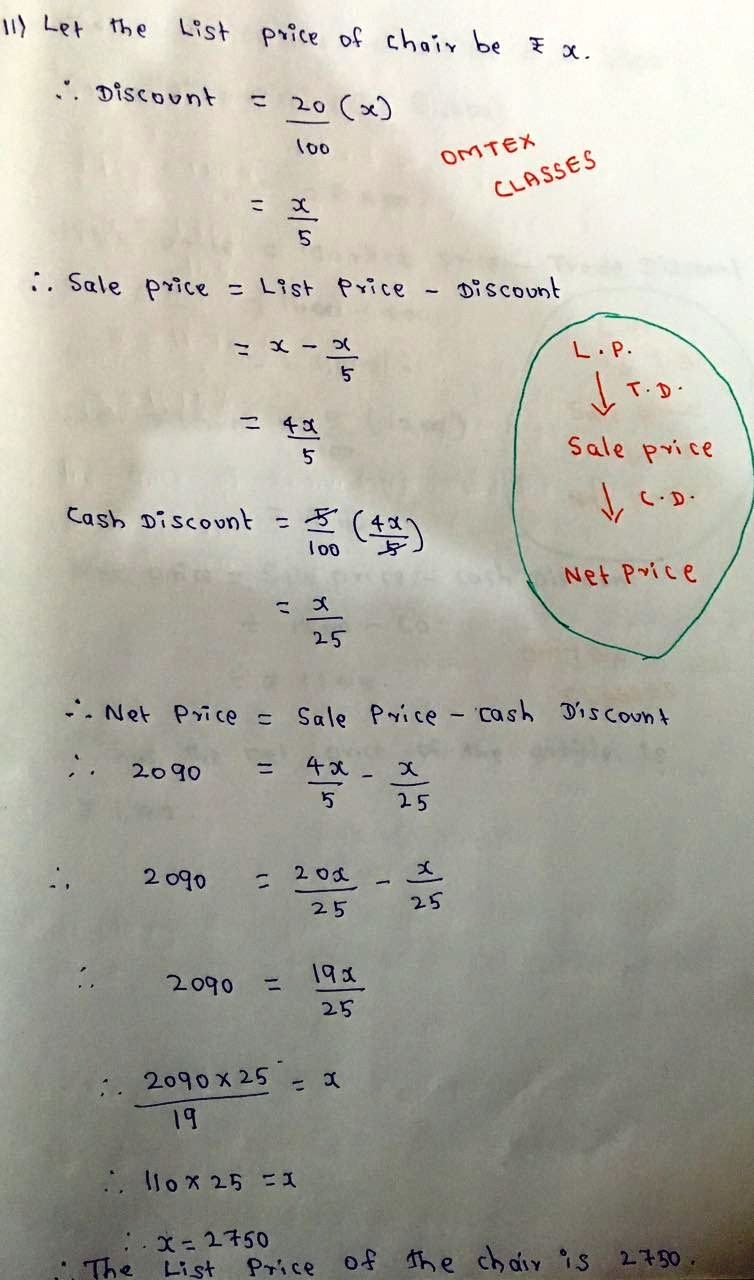 11) Let the List price of chair be ₹ x.
∴ Discount = 20/100 (x)
OMTEX
CLASSES
= x/5
∴ Sale price = List Price - Discount
= x - x/5
= 4x/5
L.P.
↓ T.D.
Sale price
↓ C.D.
Net Price
Cash Discount = 5/100 (4x/5)
= x/25
∴ Net Price = Sale Price - Cash Discount
∴ 2090 = 4x/5 - x/25
∴ 2090 = 20x/25 - x/25
∴ 2090 = 19x/25
∴ 2090 x 25/19 = x
∴ 110 x 25 = x
∴ x = 2750
∴ The List Price of the chair is 2750.